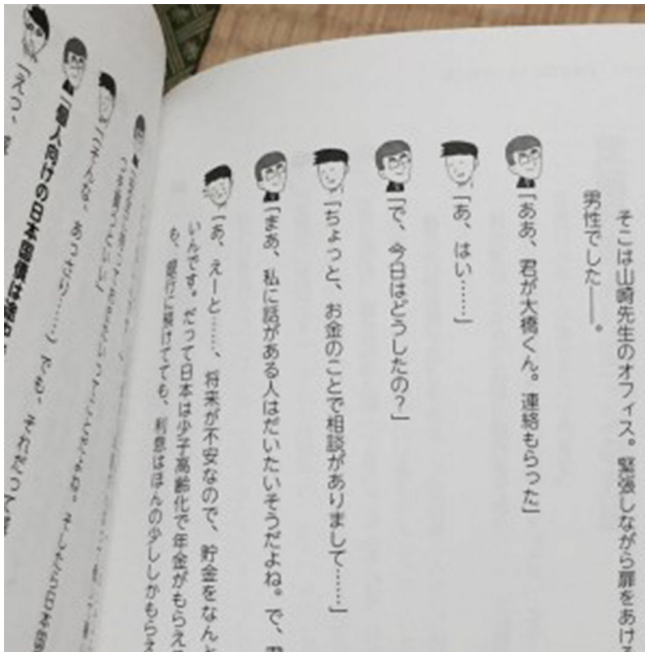 そこは山崎先生のオフィス。緊張しながら扉をあける
男性でした――。
「ああ、君が大橋くん。連絡もらった」
「あ、はい……」
「で、今日はどうしたの？」
「ちょっと、お金のことで相談がありまして……」
「まあ、私に話がある人はだいたいそうだよね。で、君
「あ、えーと……、将来が不安なので、貯金をなんと
いんです。だって日本は少子高齢化で年金がもらえ
も、銀行に預けてても、利息はほんの少ししかもらえ
「そんな、あっさり……」でも、それだって
「個人向けの日本国債は
「えっ、